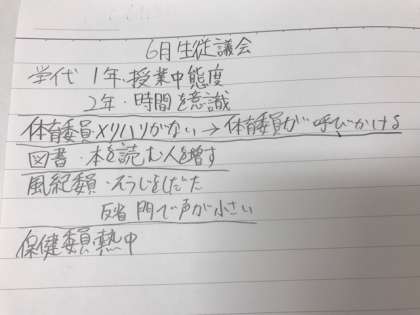 6月生徒議会
学代 1年・授業中態度
2年・時間を意識
体育委員メリハリがない→体育委員が呼びかける
図書・本を読む人を増す
風紀委員・そうじをしだた
反省 門で声が小さい
保健委員・熱中